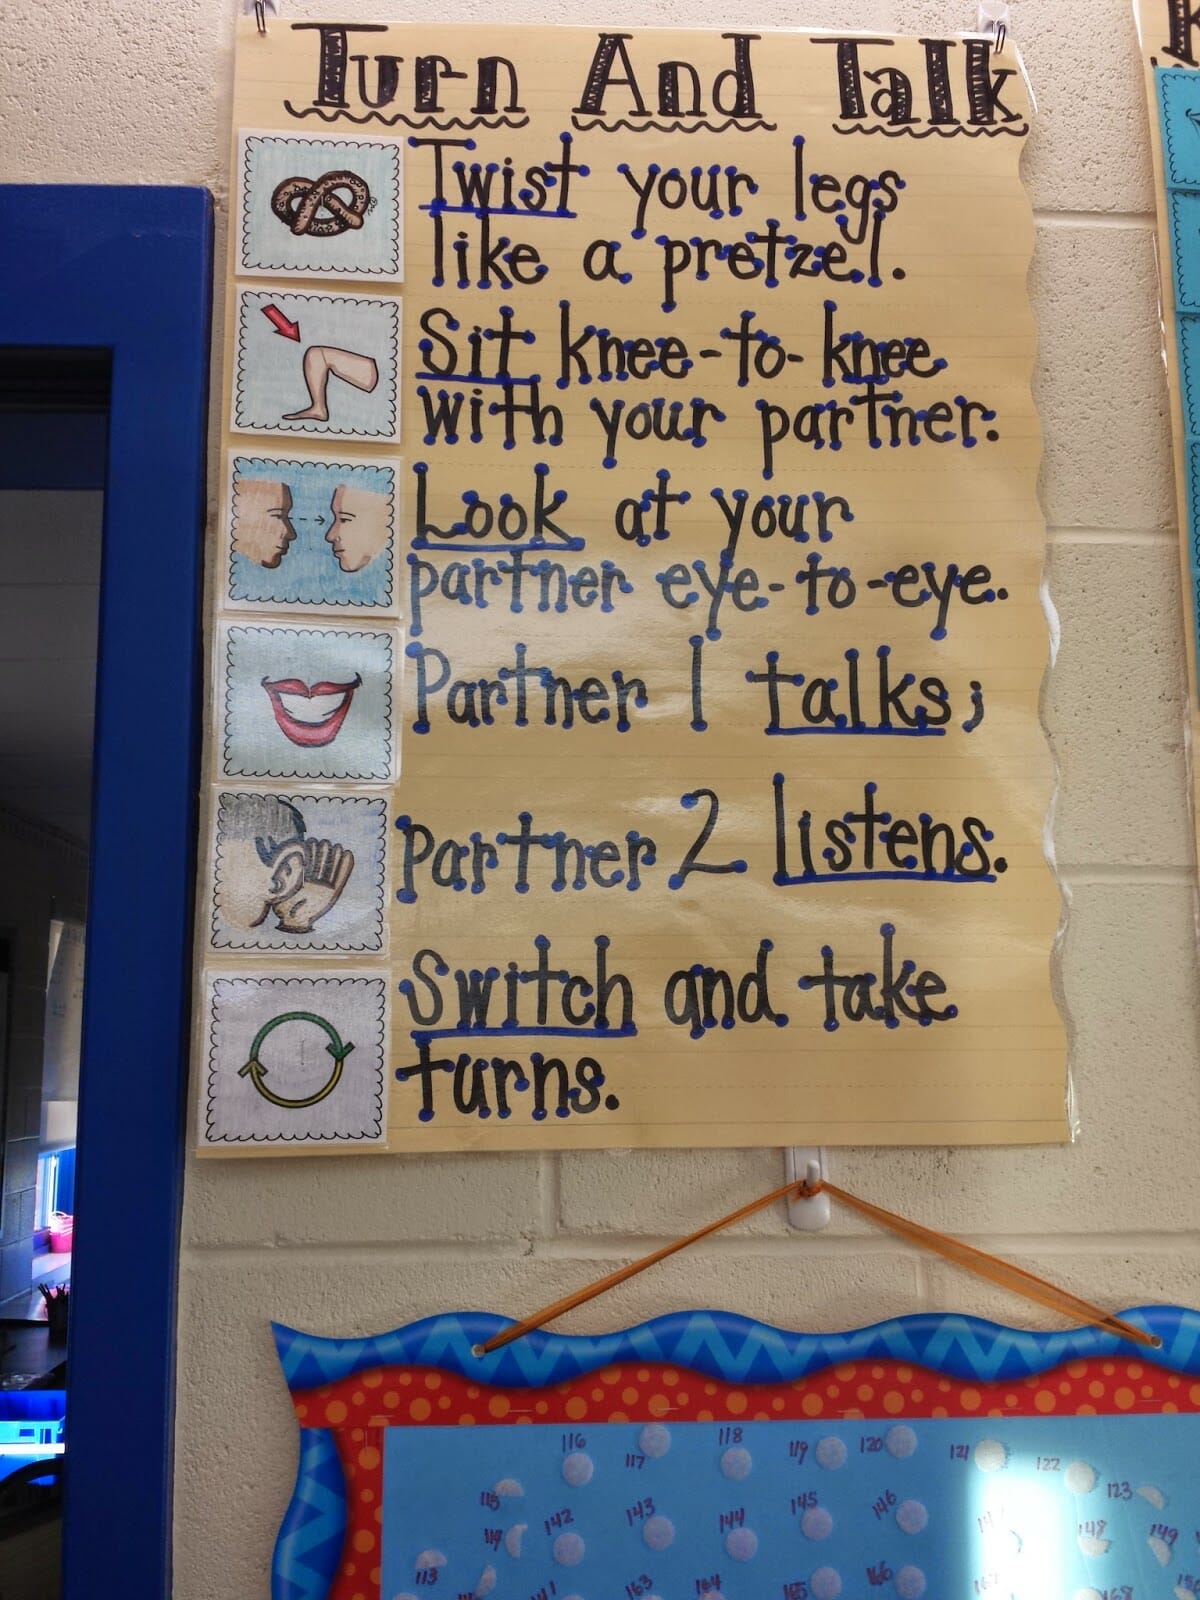 Turn And Talk
Twist your legs
like a pretzel.
Sit knee-to-knee
with your partner.
Look at your
partner eye-to-eye.
Partner 1 talks;
partner 2 listens.
Switch and take
turns.
116 117 118 119 120 121 122 123
115
114 142 143 144 145 146 147 148 149
113 141 163 164 165 166 167 168